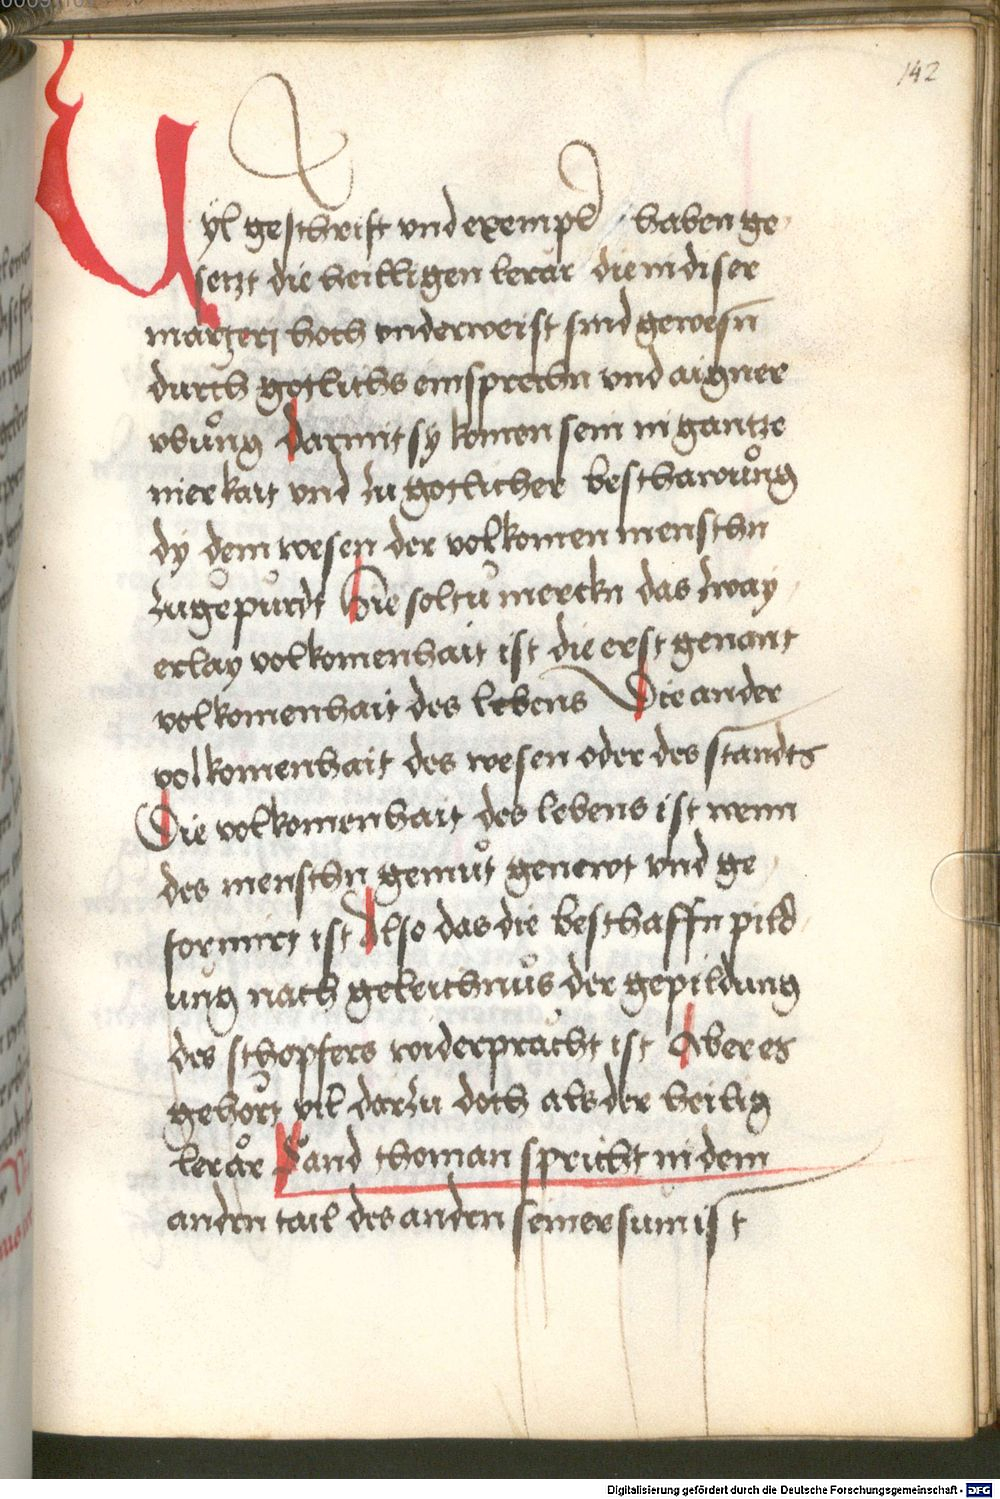 142
Vyl geschrift vnd exempl haben ge
setzt die heilligen lerär die in diser
hoch vnderweist sind gewesn
durch gotlichs einsprechn vnd aigner
vbůng darmit sy komen sein in gantze
vnd zu gotlicher beschawůng
dy dem wesen der volkomen menschn
zugepürdt Hie soltu merckn das zway
erlay volkomenhait ist die erst genant
volkomenhait des lebens Die ander
volkomenhait des wesen oder des standts
Die volkomenhait des lebens ist wenn
des menschn gemůt genewt vnd ge
formirt ist Also das die beschaffn pild
ung nach geleichnůs der gepildung
des schopfers widerpracht ist Aber es
gehört vil darzu doch als der heilig
lerår Sand thoman spricht in dem
andern tail des andern seiner sum ist
Digitalisierung gefördert durch die Deutsche Forschungsgemeinschaft - DFG